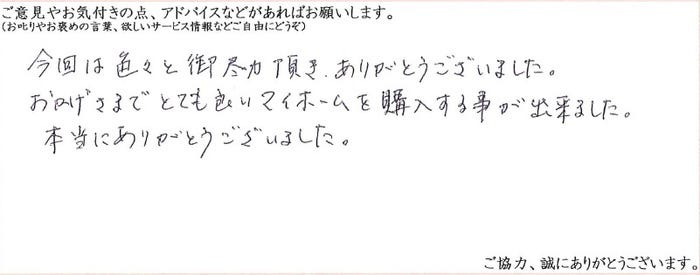 ご意見やお気付きの点、アドバイスなどがあればお願いします。
(お叱りやお褒めの言葉、欲しいサービス情報などご自由にどうぞ)
今回は色々と御尽力頂き、ありがとうございました。
おかげさまでとても良いマイホームを購入する事が出来ました。
本当にありがとうございました。
ご協力、誠にありがとうございます。